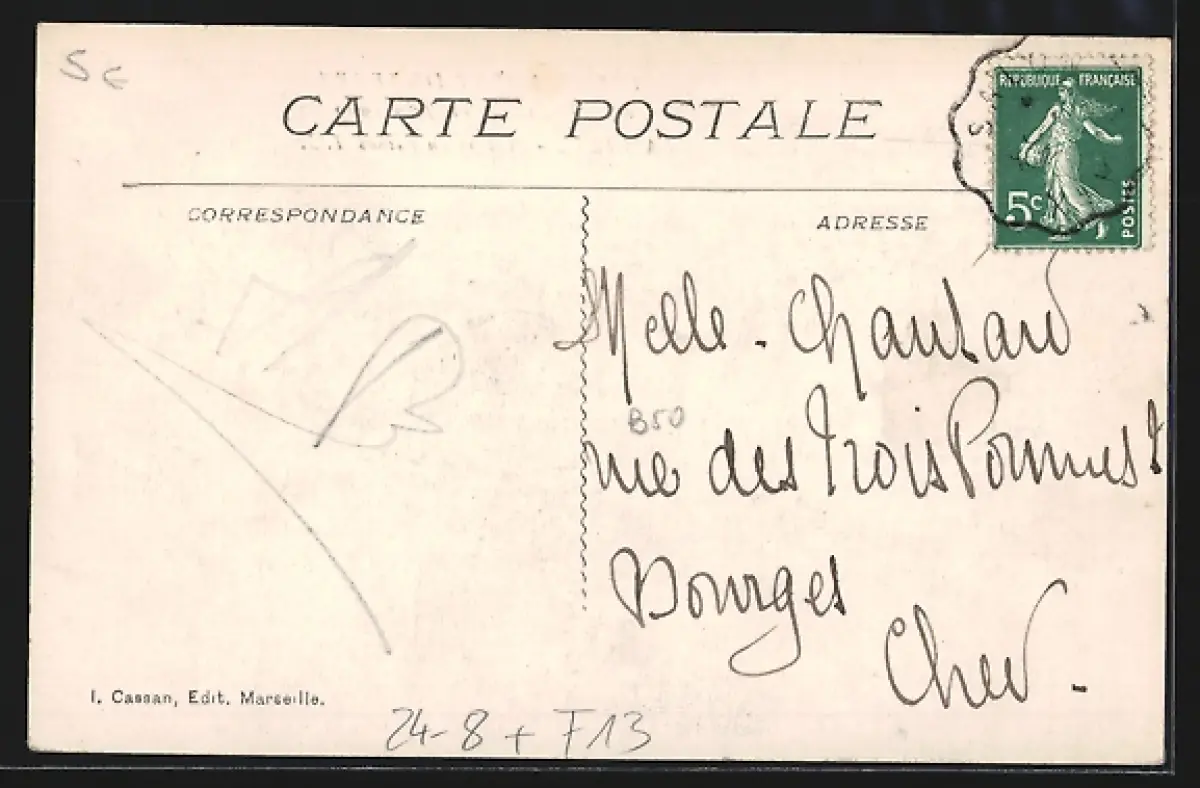 5c
CARTE POSTALE
RÉPUBLIQUE FRANÇAISE
5c
POSTES
CORRESPONDANCE
ADRESSE
Melle - Chautard
B50
rue des Trois Pommes
Bourges
Cher -
I. Cassan, Edit. Marseille.
24-8 + F13